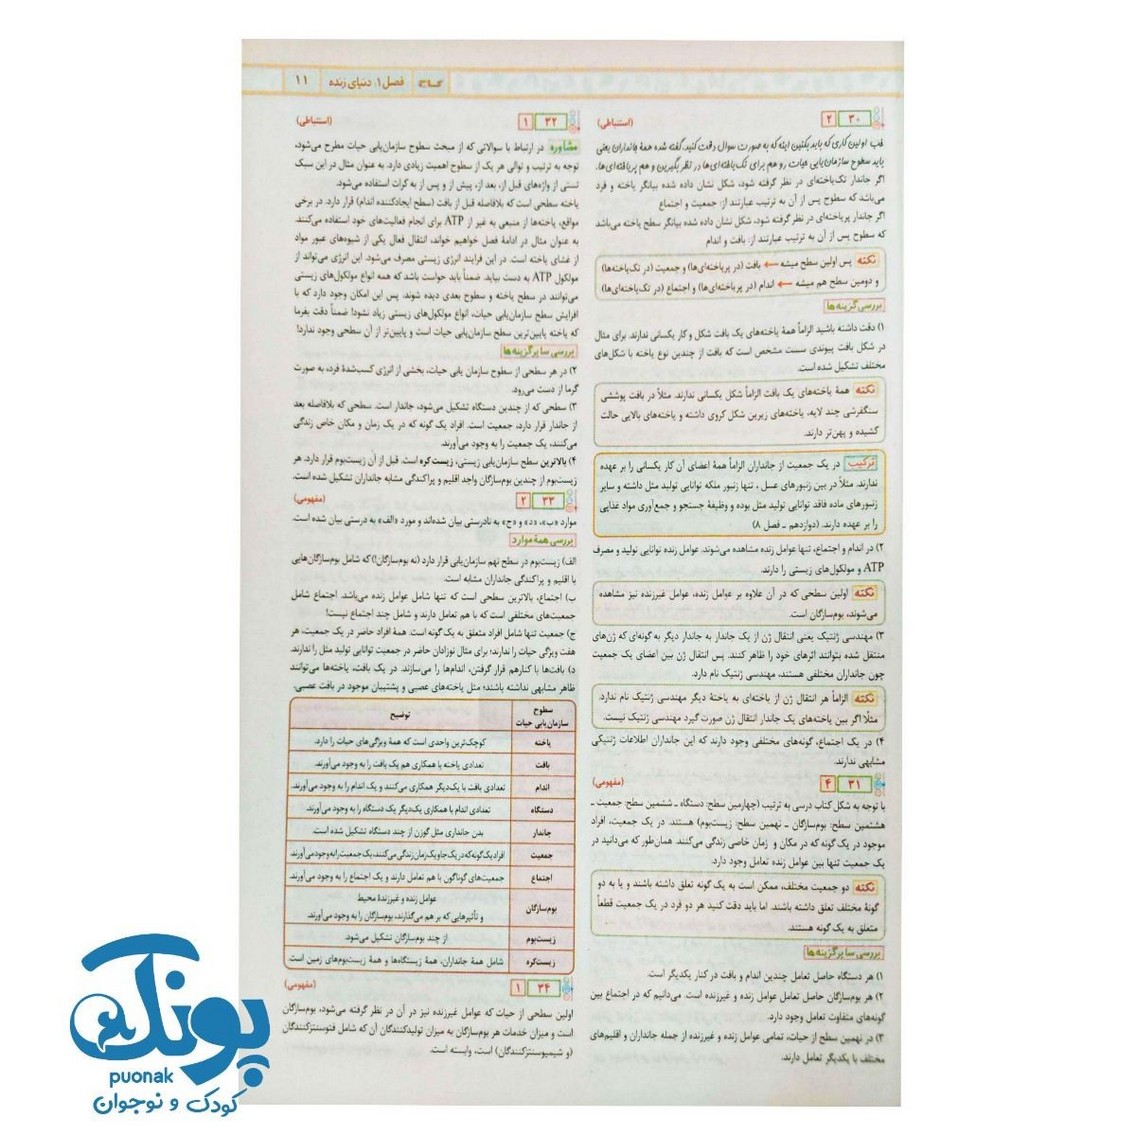 گاج فصل ۱: دنیای زنده ۱۱
۳۰ ۲ (استنباطی)
خب اولین کاری که باید بکنین اینه که به صورت سوال دقت کنید. گفته شده همهٔ جانداران یعنی
باید سطوح سازمان‌یابی حیات رو هم برای تک‌یاخته‌ای‌ها در نظر بگیرین و هم پریاخته‌ای‌ها.
اگر جاندار تک‌یاخته‌ای در نظر گرفته شود، شکل نشان داده شده بیانگر یاخته و فرد
می‌باشد که سطوح پس از آن به ترتیب عبارتند از: جمعیت و اجتماع
اگر جاندار پریاخته‌ای در نظر گرفته شود، شکل نشان داده شده بیانگر سطح یاخته می‌باشد
که سطوح پس از آن به ترتیب عبارتند از: بافت و اندام
نکته پس اولین سطح میشه ← بافت (در پریاخته‌ای‌ها) و جمعیت (در تک‌یاخته‌ها)
و دومین سطح هم میشه ← اندام (در پریاخته‌ای‌ها) و اجتماع (در تک‌یاخته‌ای‌ها)
بررسی گزینه‌ها
۱) دقت داشته باشید الزاماً همهٔ یاخته‌های یک بافت شکل و کار یکسانی ندارند. برای مثال
در شکل بافت پیوندی سست مشخص است که بافت از چندین نوع یاخته با شکل‌های
مختلف تشکیل شده است.
نکته همهٔ یاخته‌های یک بافت الزاماً شکل یکسانی ندارند. مثلاً در بافت پوششی
سنگفرشی چند لایه، یاخته‌های زیرین شکل کروی داشته و یاخته‌های بالایی حالت
کشیده و پهن‌تر دارند.
ترکیب در یک جمعیت از جانداران الزاماً همهٔ اعضای آن کار یکسانی را بر عهده
ندارند. مثلاً در بین زنبورهای عسل، تنها زنبور ملکه توانایی تولید مثل داشته و سایر
زنبورهای ماده فاقد توانایی تولید مثل بوده و وظیفهٔ جستجو و جمع‌آوری مواد غذایی
را بر عهده دارند. (دوازدهم ـ فصل ۸)
۲) در اندام و اجتماع، تنها عوامل زنده مشاهده می‌شوند. عوامل زنده توانایی تولید و مصرف
ATP و مولکول‌های زیستی را دارند.
نکته اولین سطحی که در آن علاوه بر عوامل زنده، عوامل غیرزنده نیز مشاهده
می‌شوند، بوم‌سازگان است.
۳) مهندسی ژنتیک یعنی انتقال ژن از یک جاندار به جاندار دیگر به گونه‌ای که ژن‌های
منتقل شده بتوانند اثرهای خود را ظاهر کنند. پس انتقال ژن بین اعضای یک جمعیت
چون جانداران مختلفی هستند، مهندسی ژنتیک نام دارد.
نکته الزاماً هر انتقال ژن از یاخته‌ای به یاختهٔ دیگر مهندسی ژنتیک نام ندارد.
مثلاً اگر بین یاخته‌های یک جاندار انتقال ژن صورت گیرد مهندسی ژنتیک نیست.
۴) در یک اجتماع، گونه‌های مختلفی وجود دارند که این جانداران اطلاعات ژنتیکی
مشابهی ندارند.
۳۱ ۴ (مفهومی)
با توجه به شکل کتاب درسی به ترتیب (چهارمین سطح: دستگاه ـ ششمین سطح: جمعیت ـ
هشتمین سطح: بوم‌سازگان ـ نهمین سطح: زیست‌بوم) هستند. در یک جمعیت، افراد
موجود در یک گونه که در مکان و زمان خاصی زندگی می‌کنند. همان‌طور که می‌دانید در
یک جمعیت تنها بین عوامل زنده تعامل وجود دارد.
نکته دو جمعیت مختلف، ممکن است به یک گونه تعلق داشته باشند و یا به دو
گونهٔ مختلف تعلق داشته باشند. اما باید دقت کنید هر دو فرد در یک جمعیت قطعاً
متعلق به یک گونه هستند.
بررسی سایر گزینه‌ها
۱) هر دستگاه حاصل تعامل چندین اندام و بافت در کنار یکدیگر است.
۲) هر بوم‌سازگان حاصل تعامل عوامل زنده و غیرزنده است. می‌دانیم که در اجتماع بین
گونه‌های متفاوت تعامل وجود دارد.
۳) در نهمین سطح از حیات، تمامی عوامل زنده و غیرزنده از جمله جانداران و اقلیم‌های
مختلف با یکدیگر تعامل دارند.
۳۲ ۱ (استنباطی)
مشاوره در ارتباط با سوالاتی که از مبحث سطوح سازمان‌یابی حیات مطرح می‌شود،
توجه به ترتیب و توالی هر یک از سطوح اهمیت زیادی دارد. به عنوان مثال در این سبک
تستی از واژه‌های قبل از، بعد از، پیش از و پس از به کرات استفاده می‌شود.
یاخته سطحی است که بلافاصله قبل از بافت (سطح ایجادکننده اندام) قرار دارد. در برخی
مواقع، یاخته‌ها از منبعی به غیر از ATP برای انجام فعالیت‌های خود استفاده می‌کنند.
به عنوان مثال در ادامهٔ فصل خواهیم خواند، انتقال فعال یکی از شیوه‌های عبور مواد
از غشای یاخته است. در این فرایند انرژی زیستی مصرف می‌شود. این انرژی می‌تواند از
مولکول ATP به دست بیاید. ضمناً باید حواست باشد که همه انواع مولکول‌های زیستی
می‌توانند در سطح یاخته و سطوح بعدی دیده شوند. پس این امکان وجود دارد که با
افزایش سطح سازمان‌یابی حیات، انواع مولکول‌های زیستی زیاد نشود! ضمناً دقت بفرما
که یاخته پایین‌ترین سطح سازمان‌یابی حیات است و پایین‌تر از آن سطحی وجود ندارد!
بررسی سایر گزینه‌ها
۲) در هر سطحی از سطوح سازمان یابی حیات، بخشی از انرژی کسب‌شدهٔ فرد، به صورت
گرما از دست می‌رود.
۳) سطحی که از چندین دستگاه تشکیل می‌شود، جاندار است. سطحی که بلافاصله بعد
از جاندار قرار دارد، جمعیت است. افراد یک گونه که در یک زمان و مکان خاص زندگی
می‌کنند، یک جمعیت را به وجود می‌آورند.
۴) بالاترین سطح سازمان‌یابی زیستی، زیست‌کره است. قبل از آن زیست‌بوم قرار دارد. هر
زیست‌بوم از چندین بوم‌سازگان واجد اقلیم و پراکندگی مشابه جانداران تشکیل شده است.
۳۳ ۲ (مفهومی)
موارد «ب»، «د» و «ج» به نادرستی بیان شده‌اند و مورد «الف» به درستی بیان شده است.
بررسی همهٔ موارد
الف) زیست‌بوم در سطح نهم سازمان‌یابی قرار دارد (نه بوم‌سازگان!) که شامل بوم‌سازگان‌هایی
با اقلیم و پراکندگی جانداران مشابه است.
ب) اجتماع، بالاترین سطحی است که تنها شامل عوامل زنده می‌باشد. اجتماع شامل
جمعیت‌های مختلفی است که با هم تعامل دارند و شامل چند اجتماع نیست!
ج) جمعیت تنها شامل افراد متعلق به یک گونه است. همهٔ افراد حاضر در یک جمعیت، هر
هفت ویژگی حیات را ندارند؛ برای مثال نوزادان حاضر در جمعیت توانایی تولید مثل را ندارند.
د) بافت‌ها با کنارهم قرار گرفتن، اندام‌ها را می‌سازند. در یک بافت، یاخته‌ها می‌توانند
ظاهر مشابهی نداشته باشند؛ مثل یاخته‌های عصبی و پشتیبان موجود در بافت عصبی.
سطوح سازمان‌یابی حیات توضیح
یاخته کوچک‌ترین واحدی است که همهٔ ویژگی‌های حیات را دارد.
بافت تعدادی یاخته با همکاری هم یک بافت را به وجود می‌آورند.
اندام تعدادی بافت با یک‌دیگر همکاری می‌کنند و یک اندام را به وجود می‌آورند.
دستگاه تعدادی اندام با همکاری یک‌دیگر یک دستگاه را به وجود می‌آورند.
جاندار بدن جانداری مثل گوزن از چند دستگاه تشکیل شده است.
جمعیت افراد یک گونه که در یک جا و یک زمان زندگی می‌کنند، یک جمعیت را به وجود می‌آورند.
اجتماع جمعیت‌های گوناگون با هم تعامل دارند و یک اجتماع را به وجود می‌آورند.
بوم‌سازگان عوامل زنده و غیرزندهٔ محیط
و تأثیرهایی که بر هم می‌گذارند، بوم‌سازگان را به وجود می‌آورند.
زیست‌بوم از چند بوم‌سازگان تشکیل می‌شود.
زیست‌کره شامل همهٔ جانداران، همهٔ زیستگاه‌ها و همهٔ زیست‌بوم‌های زمین است.
۳۴ ۱ (مفهومی)
اولین سطحی از حیات که عوامل غیرزنده نیز در آن در نظر گرفته می‌شود، بوم‌سازگان
است و میزان خدمات هر بوم‌سازگان به میزان تولیدکنندگان آن که شامل فتوسنتزکنندگان
(و شیمیوسنتزکنندگان) است، وابسته است.
پونک
puonak
کودک و نوجوان